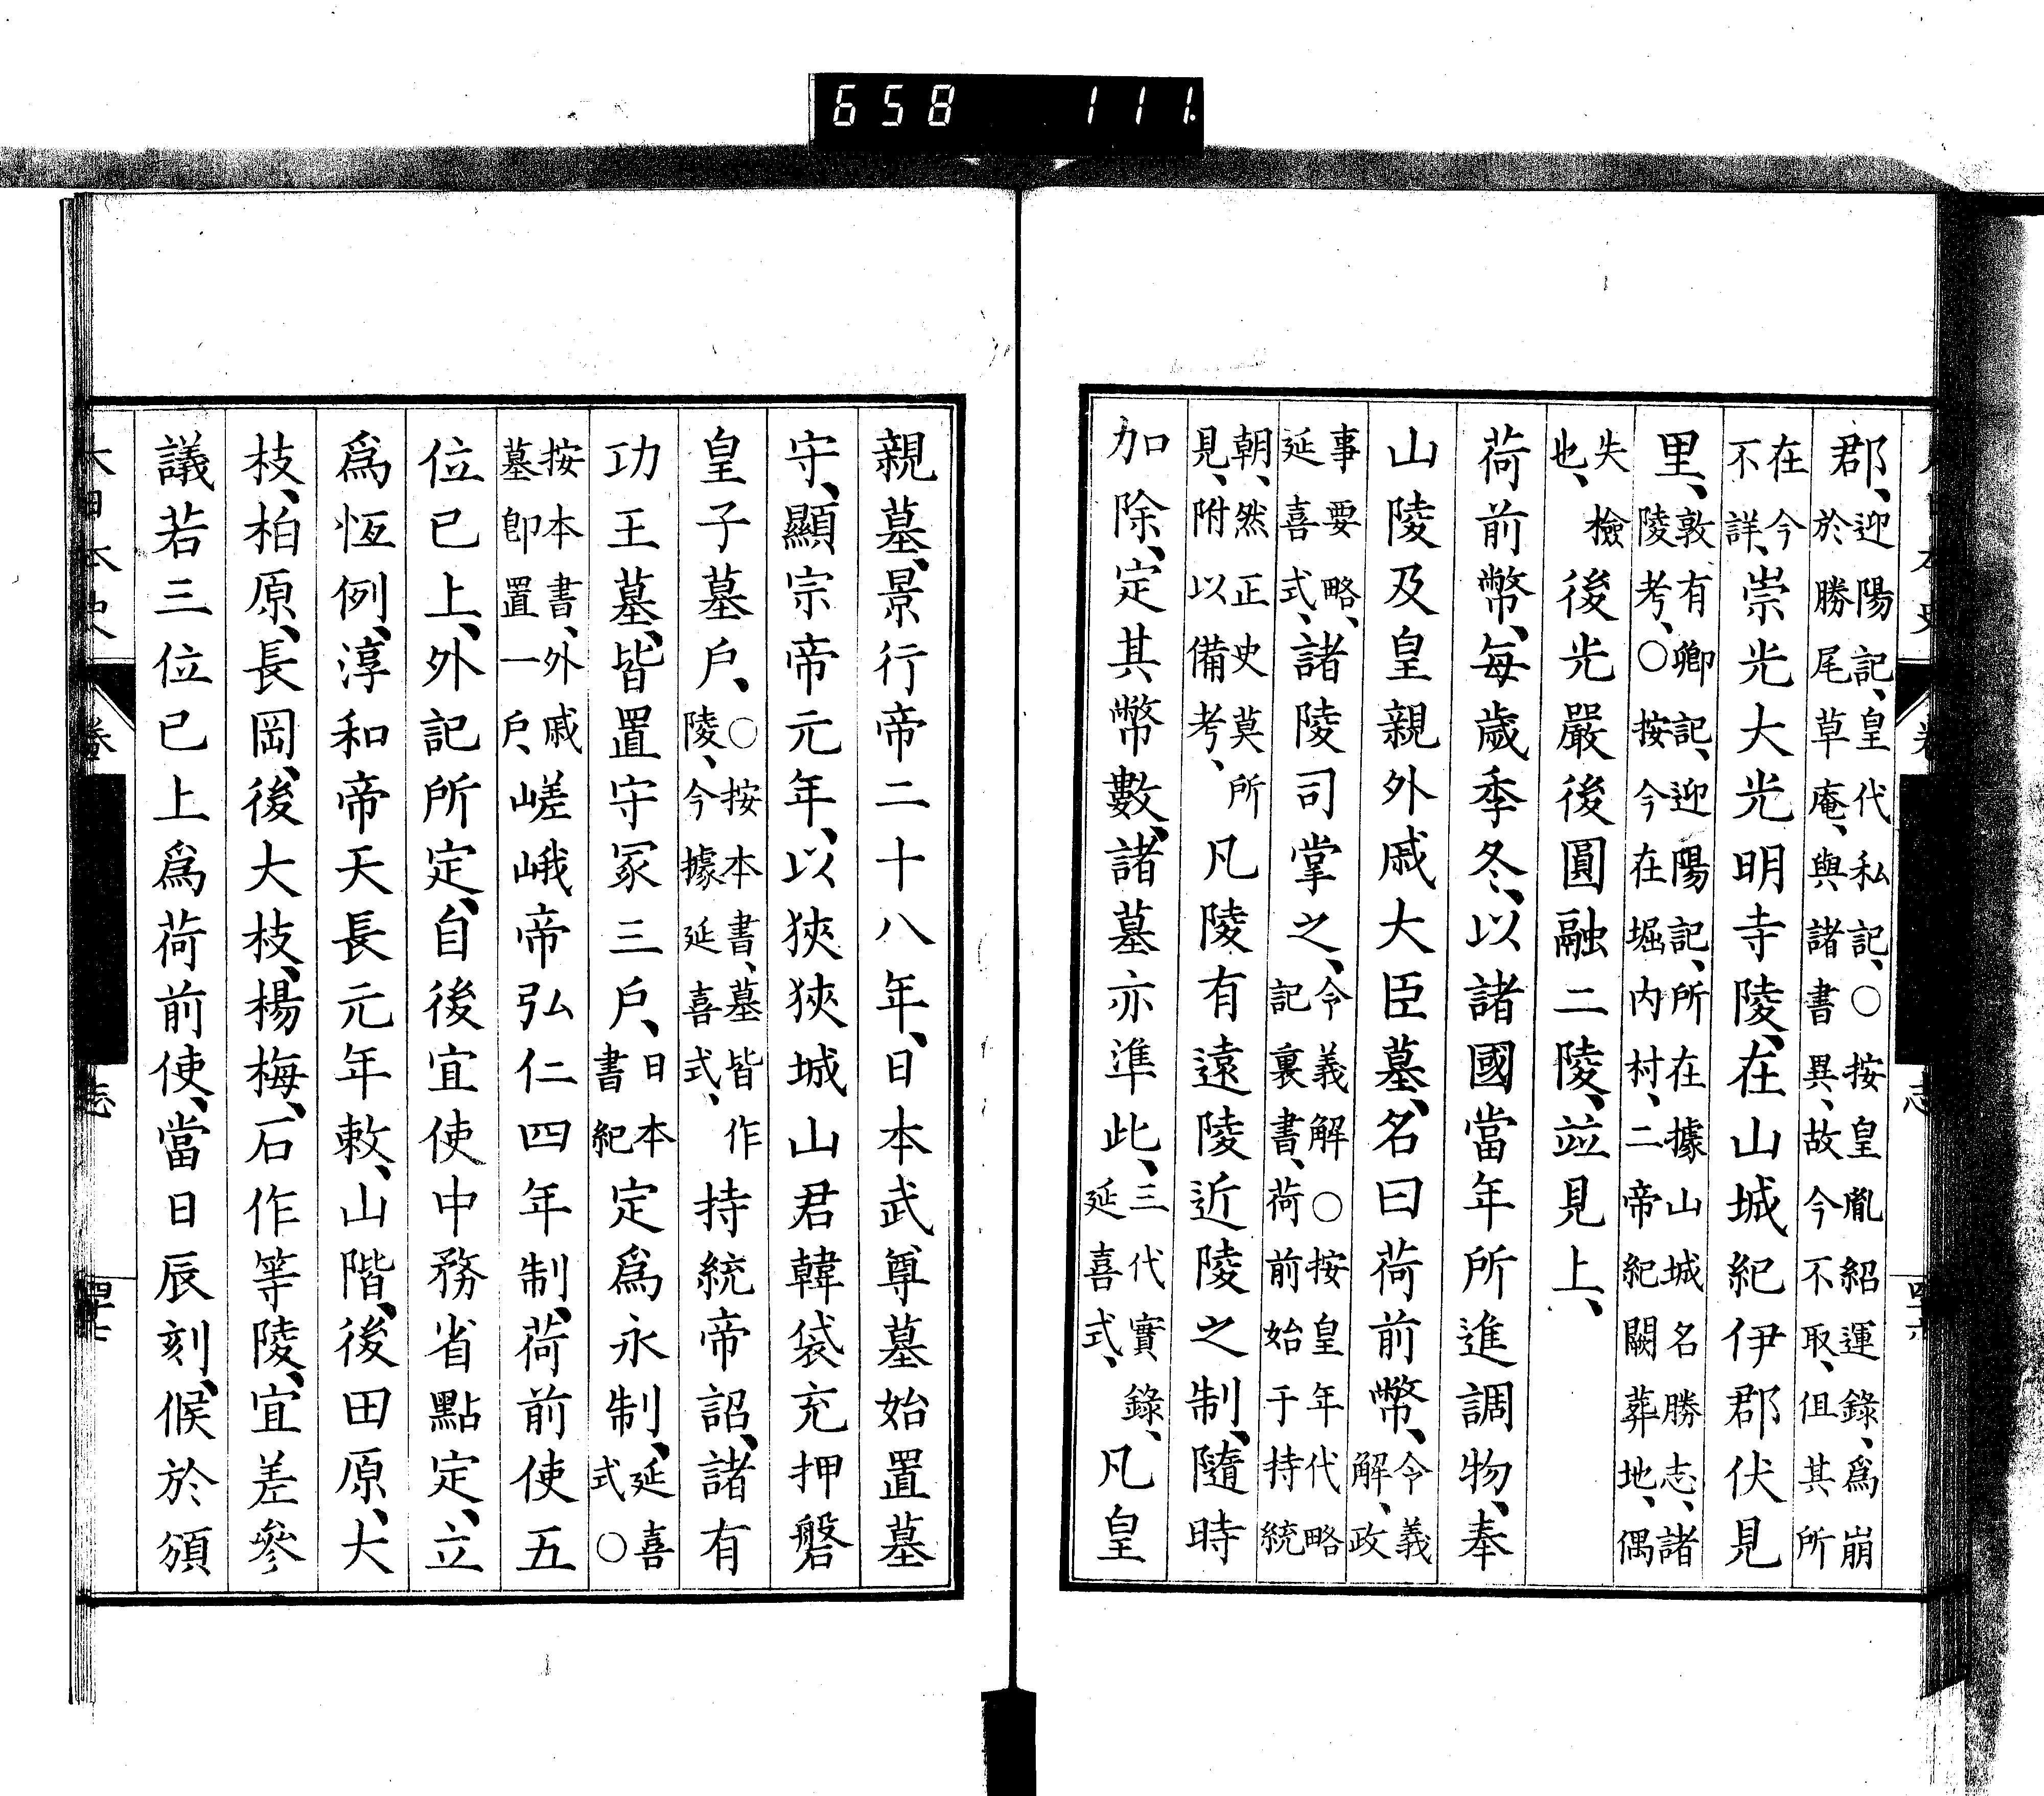 郡、迎陽記、皇代私記、○按皇胤紹運錄、爲崩
於勝尾草庵、與諸書異、故今不取、但其所
在今
不詳、崇光大光明寺陵、在山城紀伊郡伏見
里、敦有卿記、迎陽記、所在據山城名勝志、諸
陵考、○按今在堀内村、二帝紀闕葬地、偶
失檢
也、後光嚴後圓融二陵、竝見上、
荷前幣、每歲季冬、以諸國當年所進調物、奉
山陵及皇親外戚大臣墓、名曰荷前幣、令義
解、政
事要略、
延喜式、諸陵司掌之、令義解○按皇年代略
記裏書、荷前始于持統
朝、然正史莫所
見、附以備考、凡陵有遠陵近陵之制、隨時
加除、定其幣數、諸墓亦準此、三代實錄、
延喜式、凡皇
親墓、景行帝二十八年、日本武尊墓始置墓
守、顯宗帝元年、以狹狹城山君韓袋充押磐
皇子墓戶、○按本書、墓皆作
陵、今據延喜式、持統帝詔、諸有
功王墓、皆置守冢三戶、日本
書紀定爲永制、延喜
式○
按本書、外戚
墓卽置一戶、嵯峨帝弘仁四年制、荷前使五
位已上、外記所定、自後宜使中務省點定、立
爲恆例、淳和帝天長元年敕、山階、後田原、大
枝、柏原、長岡、後大枝、楊梅、石作等陵、宜差參
議若三位已上爲荷前使、當日辰刻、候於頒
大日本史
卷
志
658 111.